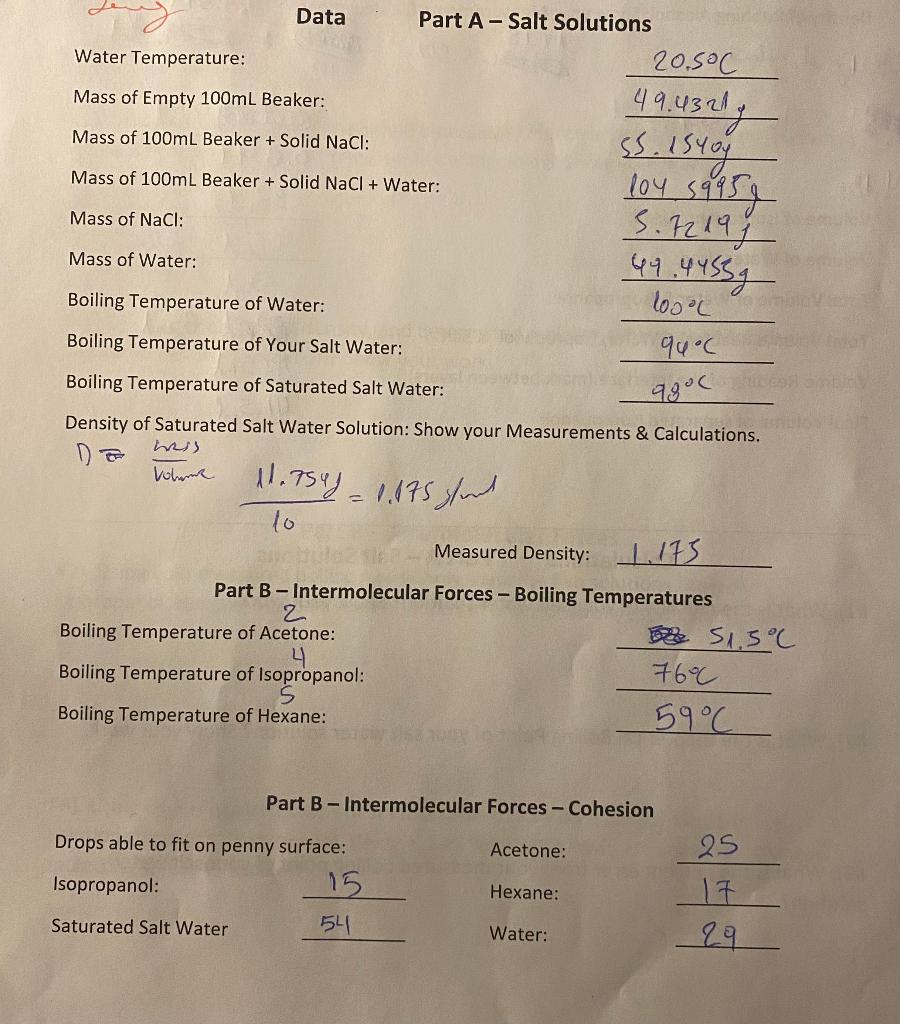 Data Part A – Salt Solutions
Water Temperature: 20.5°C
Mass of Empty 100mL Beaker: 49.4321g
Mass of 100mL Beaker + Solid NaCl: 55.1540g
Mass of 100mL Beaker + Solid NaCl + Water: 104.5995g
Mass of NaCl: 5.7219g
Mass of Water: 49.4455g
Boiling Temperature of Water: 100°C
Boiling Temperature of Your Salt Water: 94°C
Boiling Temperature of Saturated Salt Water: 98°C
Density of Saturated Salt Water Solution: Show your Measurements & Calculations.
D = mass
Volume
11.754g = 1.175 g/ml
10
Measured Density: 1.175
Part B – Intermolecular Forces – Boiling Temperatures
2
Boiling Temperature of Acetone: 51.5°C
4
Boiling Temperature of Isopropanol: 76°C
5
Boiling Temperature of Hexane: 59°C
Part B – Intermolecular Forces – Cohesion
Drops able to fit on penny surface: Acetone: 25
Isopropanol: 15 Hexane: 17
Saturated Salt Water 54 Water: 29